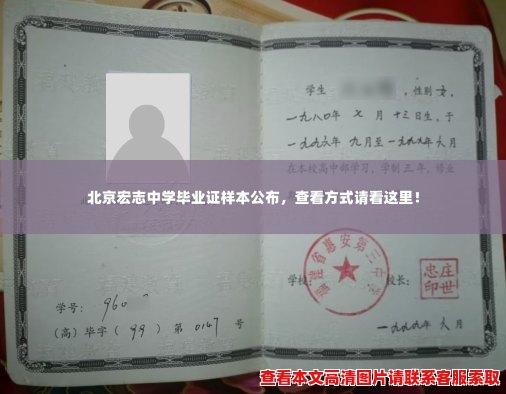 学生 ，性别 女，
一九八〇年 七 月 十三日生，于
一九九六年 九月至一九九九年六月
在本校高中部学习，学制三年，修业
北京宏志中学毕业证样本公布，查看方式请看这里！
福建省惠安第三中学
学校 校长：
庄世忠印
学号： 960
（高）毕字（ 99 ）第 0147 号
一九九九年 六 月
查看本文高清图片请联系客服索取